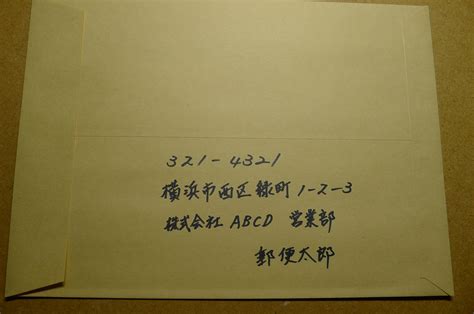 321-4321
横浜市西区緑町1-2-3
株式会社ABCD 営業部
郵便太郎